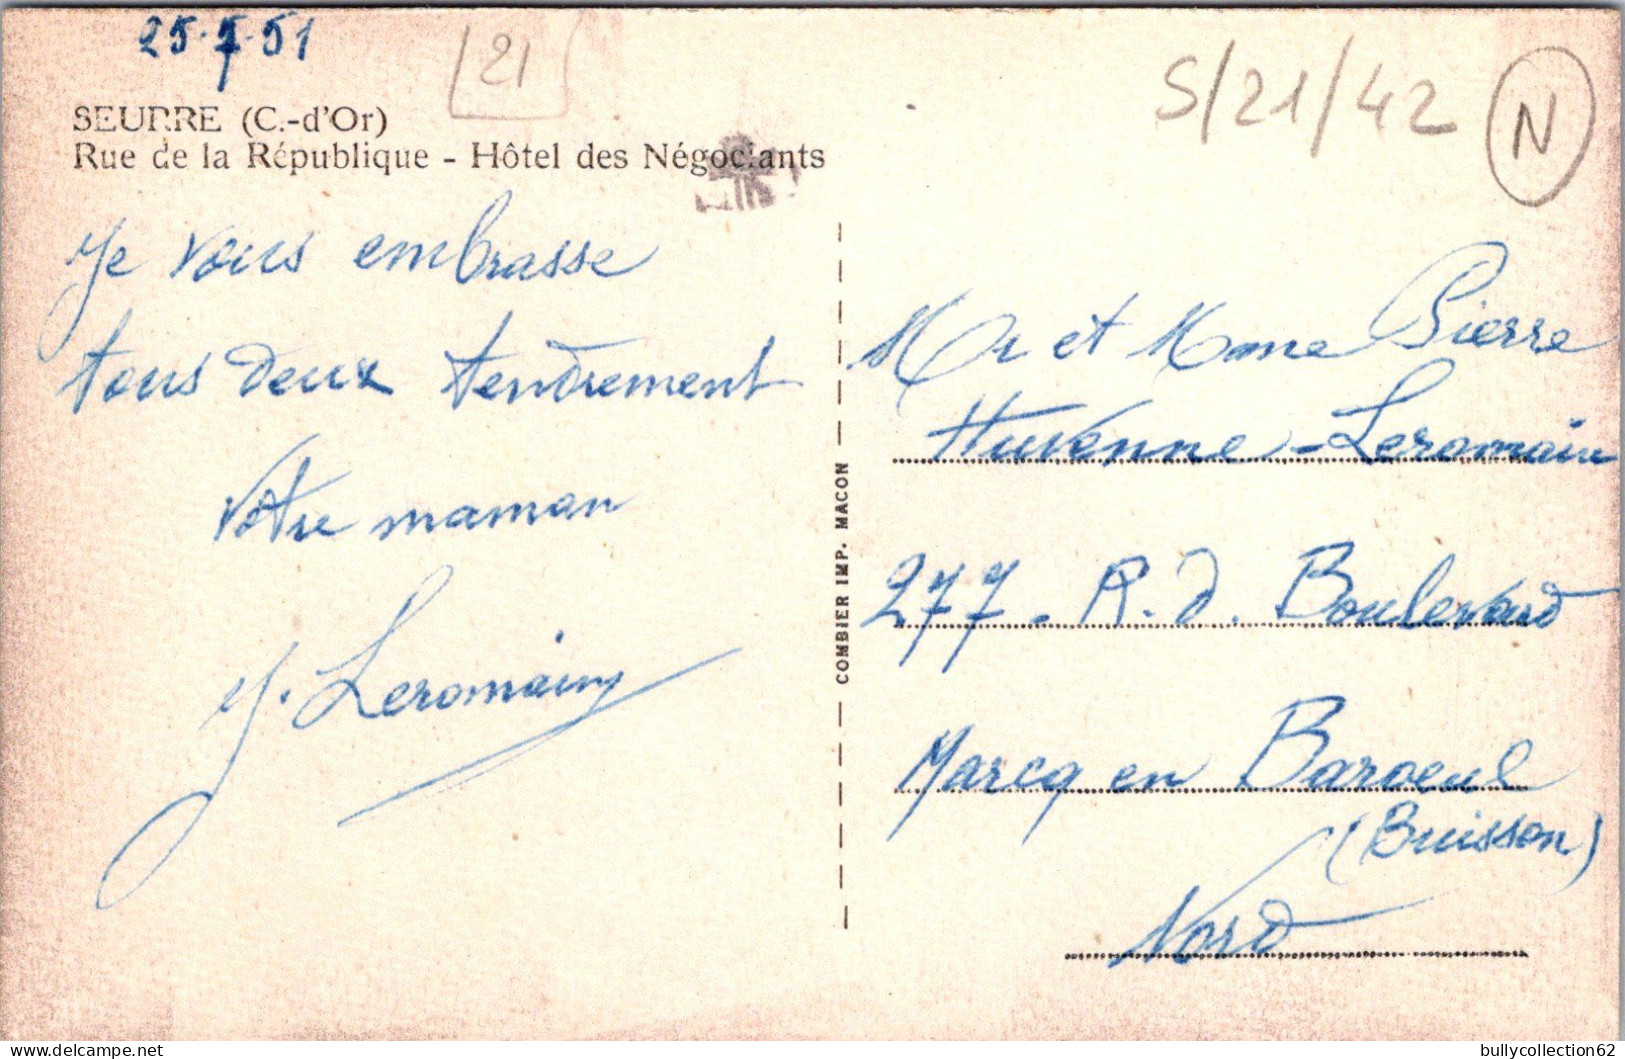 25.7.51
21
S/21/42
N
SEURRE (C.-d'Or)
Rue de la République - Hôtel des Négociants
Je vous embrasse
tous deux tendrement
Votre maman
Y. Leromain
COMBIER IMP. MACON
Mr et Mme Pierre
Huvenne-Leromain
277. R. d. Boulevard
Marcq en Baroeul
(Buisson)
Nord
bullycollection62